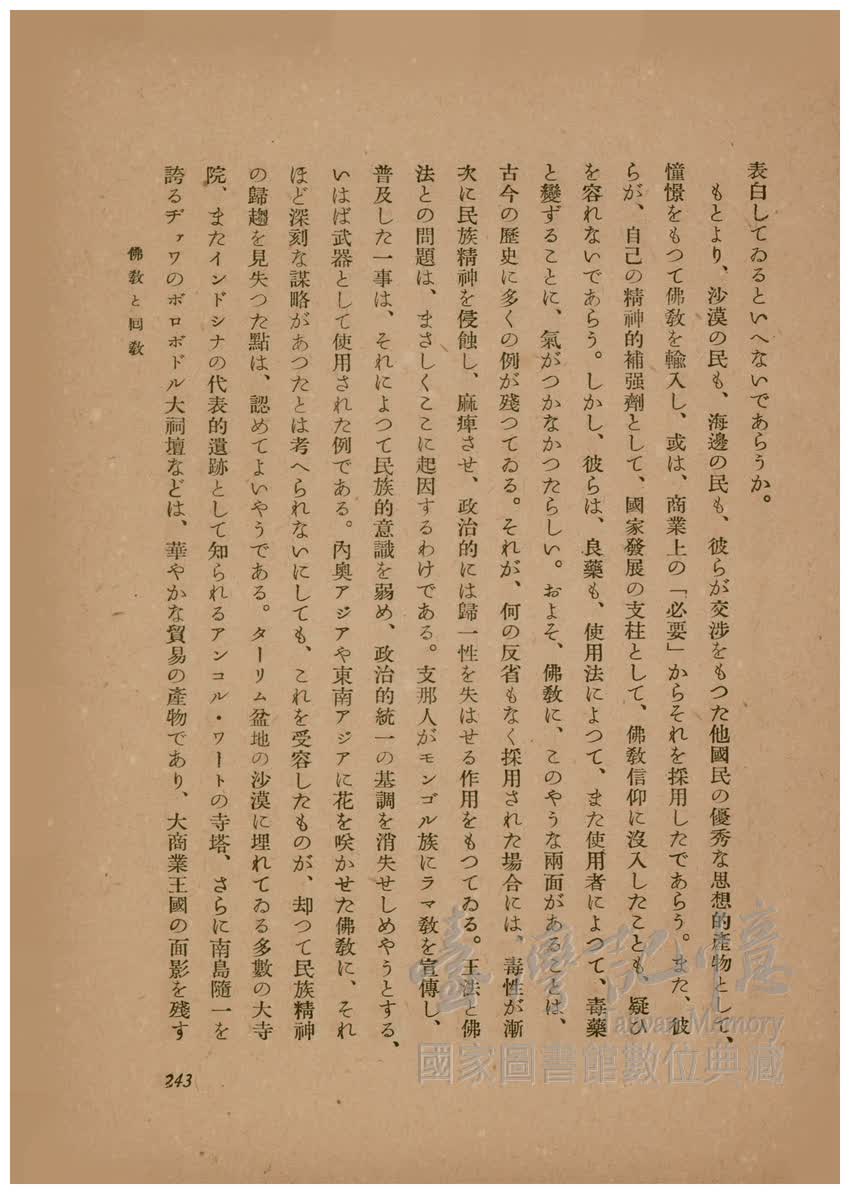 表白してゐるといへないであらうか。
もとより、沙漠の民も、海邊の民も、彼らが交渉をもつた他國民の優秀な思想的產物として、
憧憬をもつて佛敎を輸入し、或は、商業上の「必要」からそれを採用したであらう。また、彼
らが、自己の精神的補强劑として、國家發展の支柱として、佛敎信仰に沒入したことも、疑ひ
を容れないであらう。しかし、彼らは、良藥も、使用法によつて、また使用者によつて、毒藥
と變ずることに、氣がつかなかつたらしい。およそ、佛敎に、このやうな兩面があることは、
古今の歷史に多くの例が殘つてゐる。それが、何の反省もなく採用された場合には、毒性が漸
次に民族精神を侵蝕し、麻痺させ、政治的には歸一性を失はせる作用をもつてゐる。王法と佛
法との問題は、まさしくここに起因するわけである。支那人がモンゴル族にラマ敎を宣傳し、
普及した一事は、それによつて民族的意識を弱め、政治的統一の基調を消失せしめやうとする、
いはば武器として使用された例である。內奧アジアや東南アジアに花を咲かせた佛敎に、それ
ほど深刻な謀略があつたとは考へられないにしても、これを受容したものが、却つて民族精神
の歸趨を見失つた點は、認めてよいやうである。ターリム盆地の沙漠に埋れてゐる多數の大寺
院、またインドシナの代表的遺跡として知られるアンコル・ワートの寺塔、さらに南島隨一を
誇るヂァワのボロボドル大祠壇などは、華やかな貿易の產物であり、大商業王國の面影を殘す
佛敎と回敎
243
臺灣記憶
Taiwan Memory
國家圖書館數位典藏